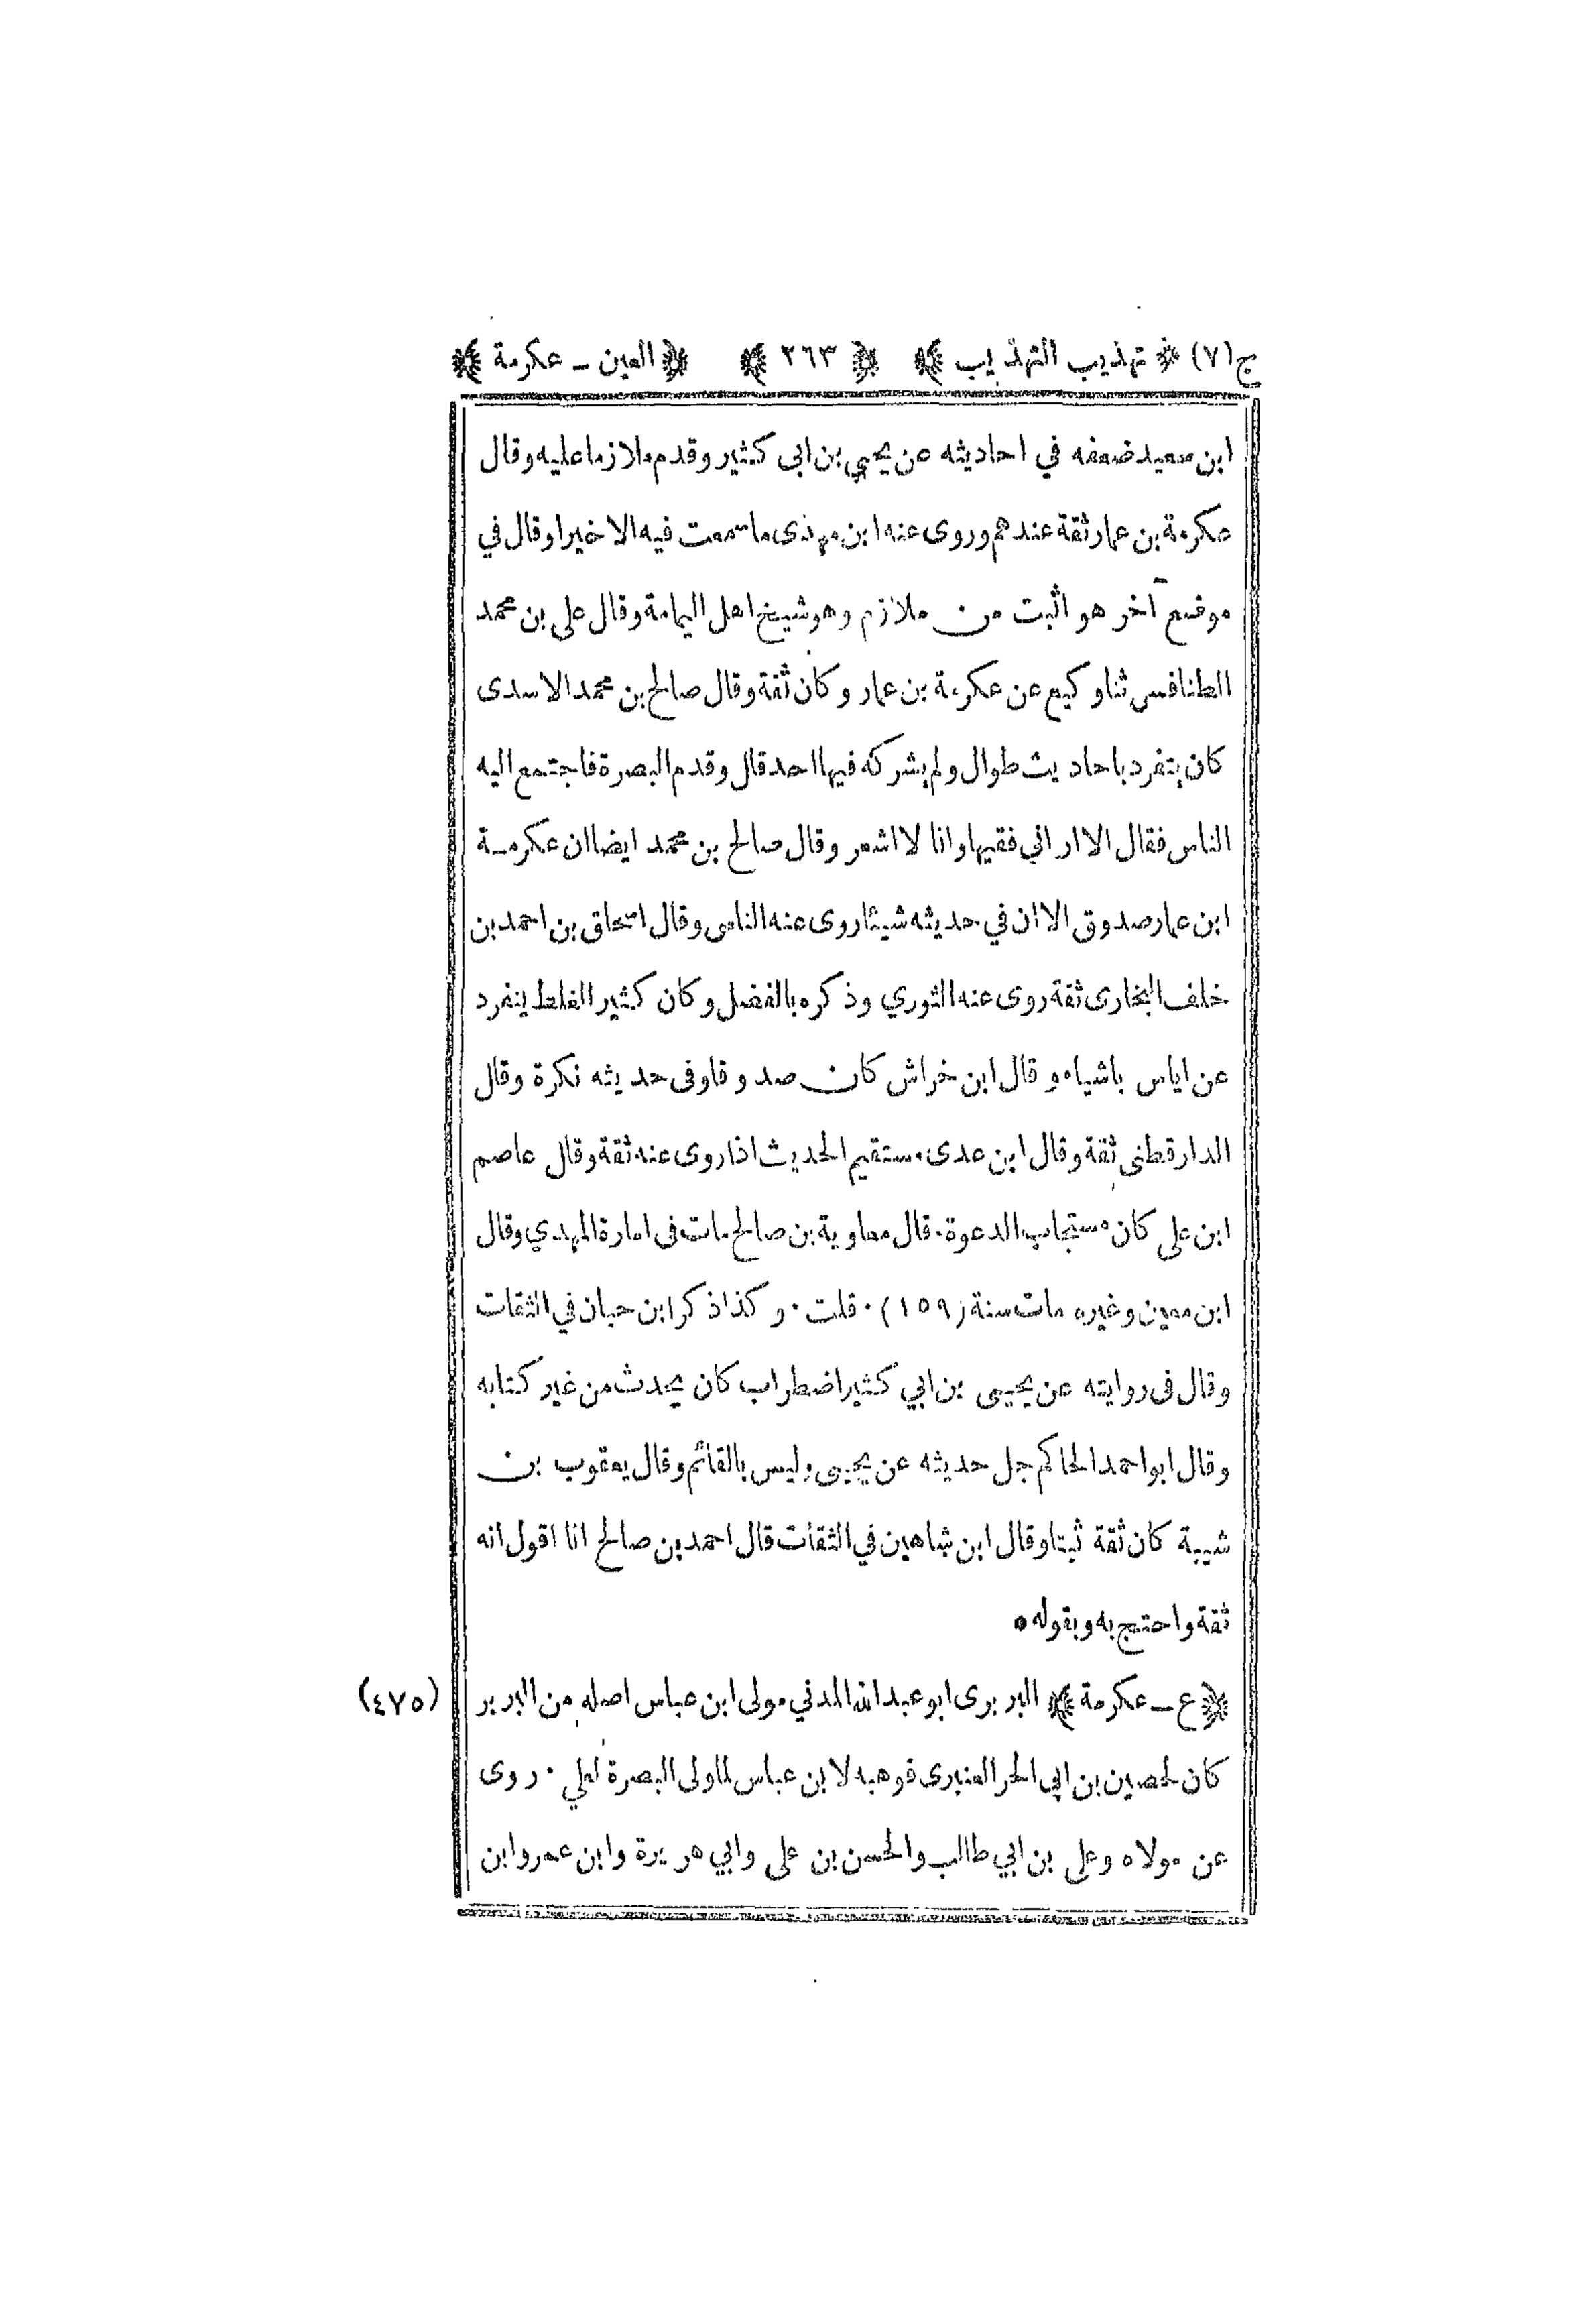 ج(٧) ﴿ تهذيب التهذيب ﴾ ﴿ ٢٦٣ ﴾ ﴿ العين ـ عكرمة ﴾
ابن سعيد ضعفه في احاديثه عن يحيى بن ابى كثير وقدم ملازما عليه وقال
عكرمة بن عمار ثقة عندهم وروى عنه ابن مهدى ما سمعت فيه الا خيرا وقال في
موضع آخر هو اثبت من ملازم وهو شيخ اهل اليمامة وقال على بن محمد
الطنافسى ثنا وكيع عن عكرمة بن عمار وكان ثقة وقال صالح بن محمد الاسدى
كان يتفرد باحاديث طوال ولم يشركه فيها احد قال وقدم البصرة فاجتمع اليه
الناس فقال الا ارانى فقيها وانا لا اشعر وقال صالح بن محمد ايضا ان عكرمة
ابن عمار صدوق الا ان في حديثه شيئا روى عنه الناس وقال اسحاق بن احمد بن
خلف البخارى ثقة روى عنه الثوري وذكره بالفضل وكان كثير الغلط ينفرد
عن اياس باشياء وقال ابن خراش كان صدوقا وفى حديثه نكرة وقال
الدارقطنى ثقة وقال ابن عدى مستقيم الحديث اذا روى عنه ثقة وقال عاصم
ابن على كان مستجاب الدعوة. قال معاوية بن صالح مات فى امارة المهدي وقال
ابن معين وغيره مات سنة (١٥٩). قلت. وكذا ذكر ابن حبان في الثقات
وقال فى روايته عن يحيى بن ابي كثير اضطراب كان يحدث من غير كتابه
وقال ابو احمد الحاكم جل حديثه عن يحيى وليس بالقائم وقال يعقوب بن
شيبة كان ثقة ثبتا وقال ابن شاهين في الثقات قال احمد بن صالح انا اقول انه
ثقة واحتج به وبقوله ٥
﴿ ع ـ عكرمة ﴾ البربرى ابو عبد الله المدني مولى ابن عباس اصله من البربر (٤٧٥)
كان لحصين بن ابى الحر العنبرى فوهبه لابن عباس لما ولى البصرة لعلي. روى
عن مولاه وعلى بن ابي طالب والحسن بن على وابي هريرة وابن عمر وابن